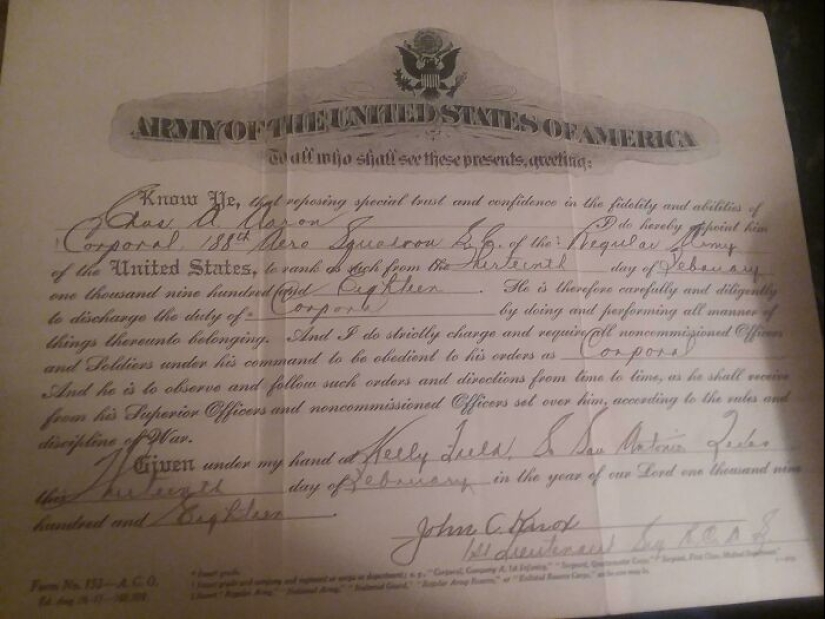 ARMY OF THE UNITED STATES OF AMERICA
To all who shall see these presents, greeting:
Know Ye, that reposing special trust and confidence in the fidelity and abilities of
Chas A. Aaron I do hereby appoint him
Corporal, 188th Aero Squadron S.C. of the Regular Army
of the United States, to rank as such from the thirteenth day of Febouary
one thousand nine hundred and Eighteen. He is therefore carefully and diligently
to discharge the duty of Corporal by doing and performing all manner of
things thereunto belonging. And I do strictly charge and require all noncommissioned Officers
and Soldiers under his command to be obedient to his orders as Corporal
And he is to observe and follow such orders and directions from time to time, as he shall receive
from his Superior Officers and noncommissioned Officers set over him, according to the rules and
discipline of War.
Given under my hand at Kelly Field, So San Antonio Texas
this thirteenth day of Febouary in the year of our Lord one thousand nine
hundred and Eighteen.
John C. Knox
1st Lieutenant
Form No. 152—A.G.O.
* Insert grade.